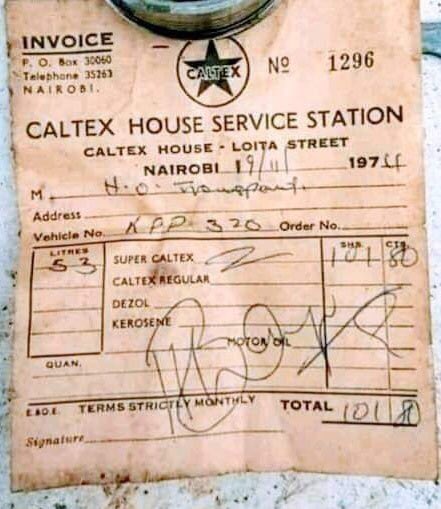 INVOICE
P. O. Box 30060
Telephone 35263
NAIROBI.
CALTEX
Nº 1296
CALTEX HOUSE SERVICE STATION
CALTEX HOUSE - LOITA STREET
NAIROBI 19/11 1974
M. H.O. Transport.
Address
Vehicle No. KPP 320 Order No.
LITRES SHS. CTS.
53 SUPER CALTEX 101 80
CALTEX REGULAR
DEZOL
KEROSENE
MOTOR OIL
QUAN.
E.&O.E. TERMS STRICTLY MONTHLY TOTAL 101 80
Signature